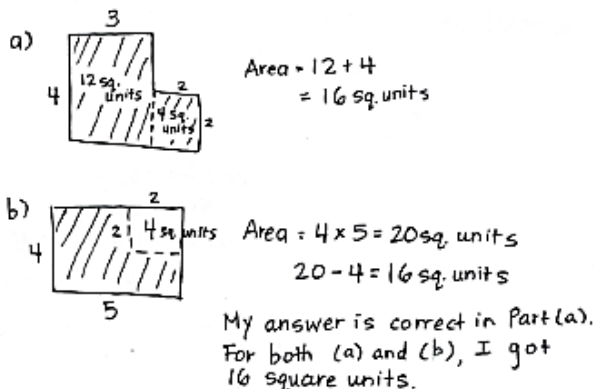 a)
3
4
12 sq. units
2
4 sq. units
2
Area = 12 + 4
= 16 sq. units
b)
2
4
2
4 sq units
5
Area = 4 x 5 = 20 sq. units
20 - 4 = 16 sq. units
My answer is correct in Part (a).
For both (a) and (b), I got
16 square units.